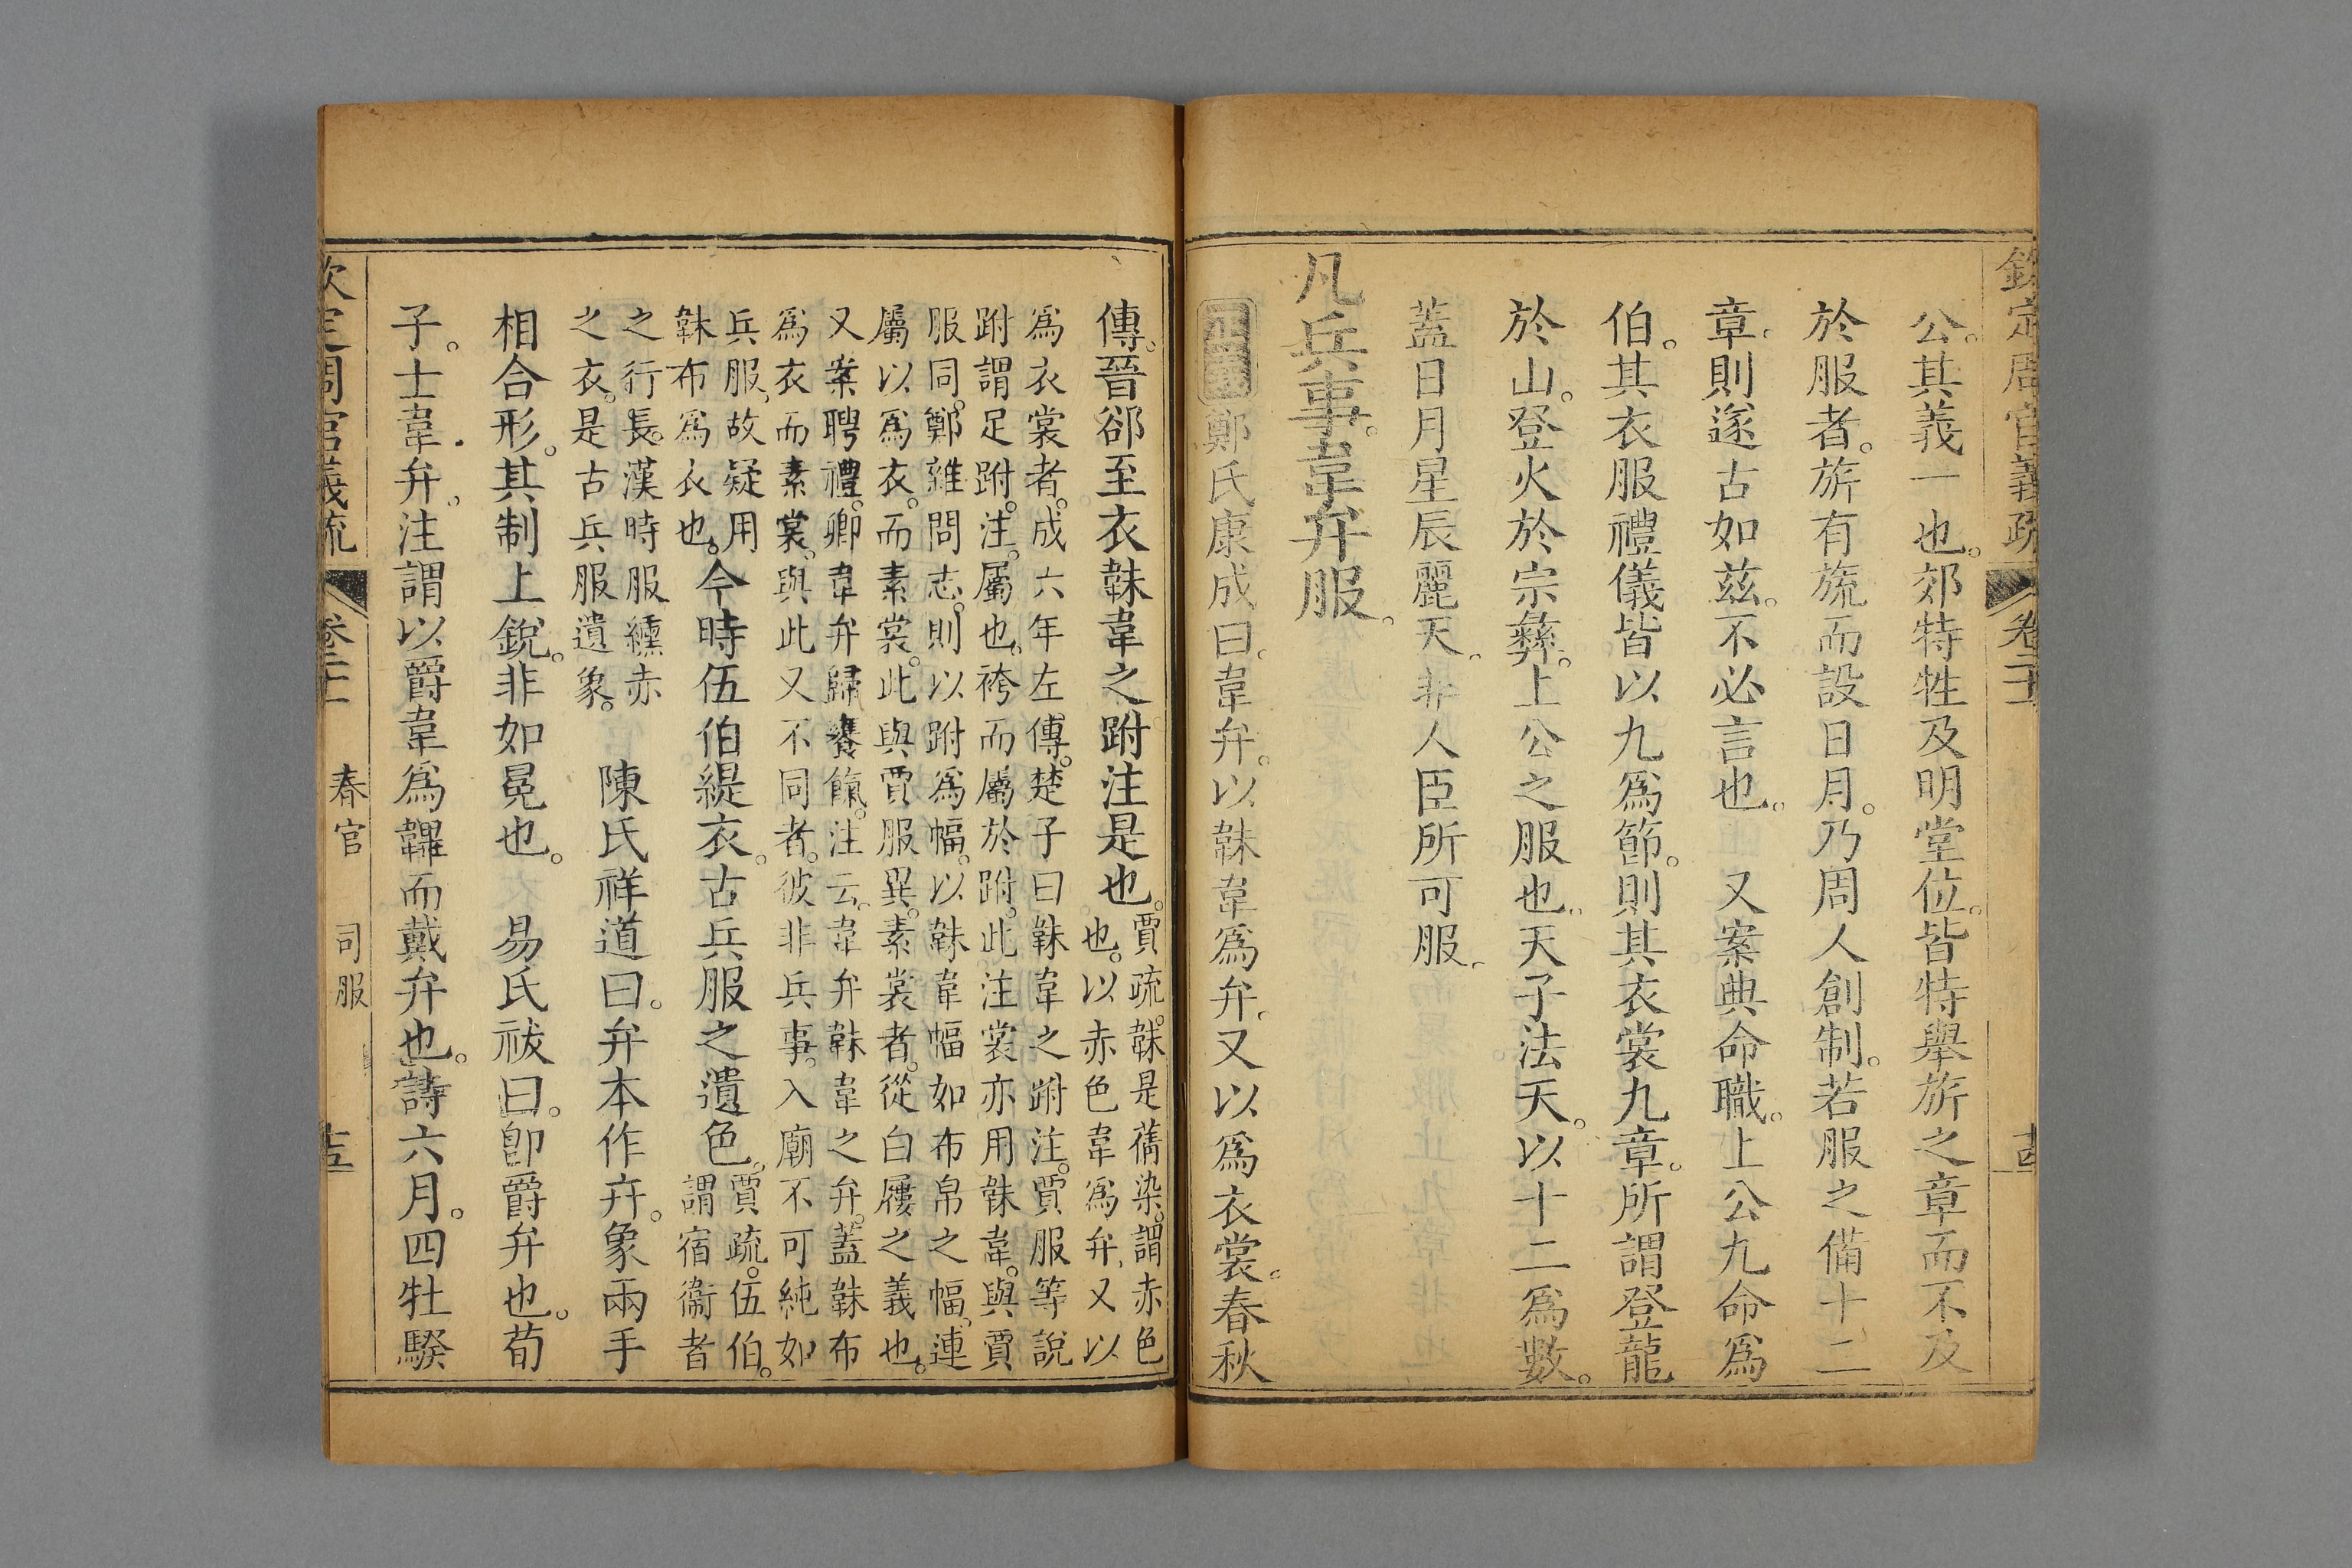 欽定周官義疏 卷二十一 十四
公。其義一也。郊特牲及明堂位。皆特舉旂之章而不及
於服者。旂有旒而設日月。乃周人創制。若服之備十二
章。則遂古如茲。不必言也。 又案典命職。上公九命爲
伯。其衣服禮儀皆以九爲節。則其衣裳九章。所謂登龍
於山。登火於宗彝。上公之服也。天子法天。以十二爲數。
蓋日月星辰麗天。非人臣所可服。
凡兵事。韋弁服。
正義 鄭氏康成曰。韋弁。以韎韋爲弁。又以爲衣裳。春秋
傳。晉郤至衣韎韋之跗注是也。
賈疏。韎是蒨染。謂赤色
也。以赤色韋爲弁。又以
爲衣裳者。成六年左傳。楚子曰韎韋之跗注。賈服等說
跗謂足跗。注。屬也。袴而屬於跗。此注裳亦用韎韋。與賈
服同。鄭雜問志。則以跗爲幅。以韎韋幅如布帛之幅。連
屬以爲衣。而素裳。此與賈服異。素裳者。從白屨之義也。
又案聘禮。卿韋弁歸饔餼。注云。韋弁韎韋之弁。蓋韎布
爲衣而素裳。與此又不同者。彼非兵事。入廟不可純如
兵服。故疑用
韎布爲衣也。
今時伍伯緹衣。古兵服之遺色。
賈疏。伍伯。
謂宿衞者
之行長。漢時服纁赤
之衣。是古兵服遺象。
陳氏祥道曰。弁本作𠦑。象兩手
相合形。其制上銳。非如冕也。 易氏祓曰。卽爵弁也。荀
子。士韋弁。注謂以爵韋爲韠而戴弁也。詩六月。四牡騤
欽定周官義疏 卷二十一 春官 司服 十五